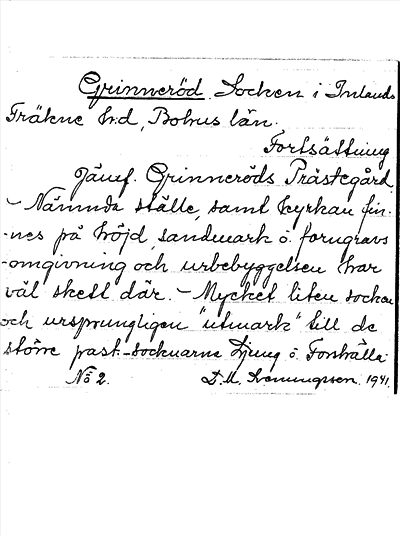 Grinneröd. Socken i Inlands
Fräkne h:d, Bohus län.
Fortsättning
Jämf. Grinneröds Prästegård.
- Nämnda ställe, samt kyrkan fin-
-nes på höjd, sandmark o. forngravs
-omgivning och urbebyggelsen har
väl skett där. - Mycket liten socken
och ursprungligen "utmark" till de
större past.-socknarne Ljung o. Forshälla.
No 2. D. M. Hemmingsson. 1941.